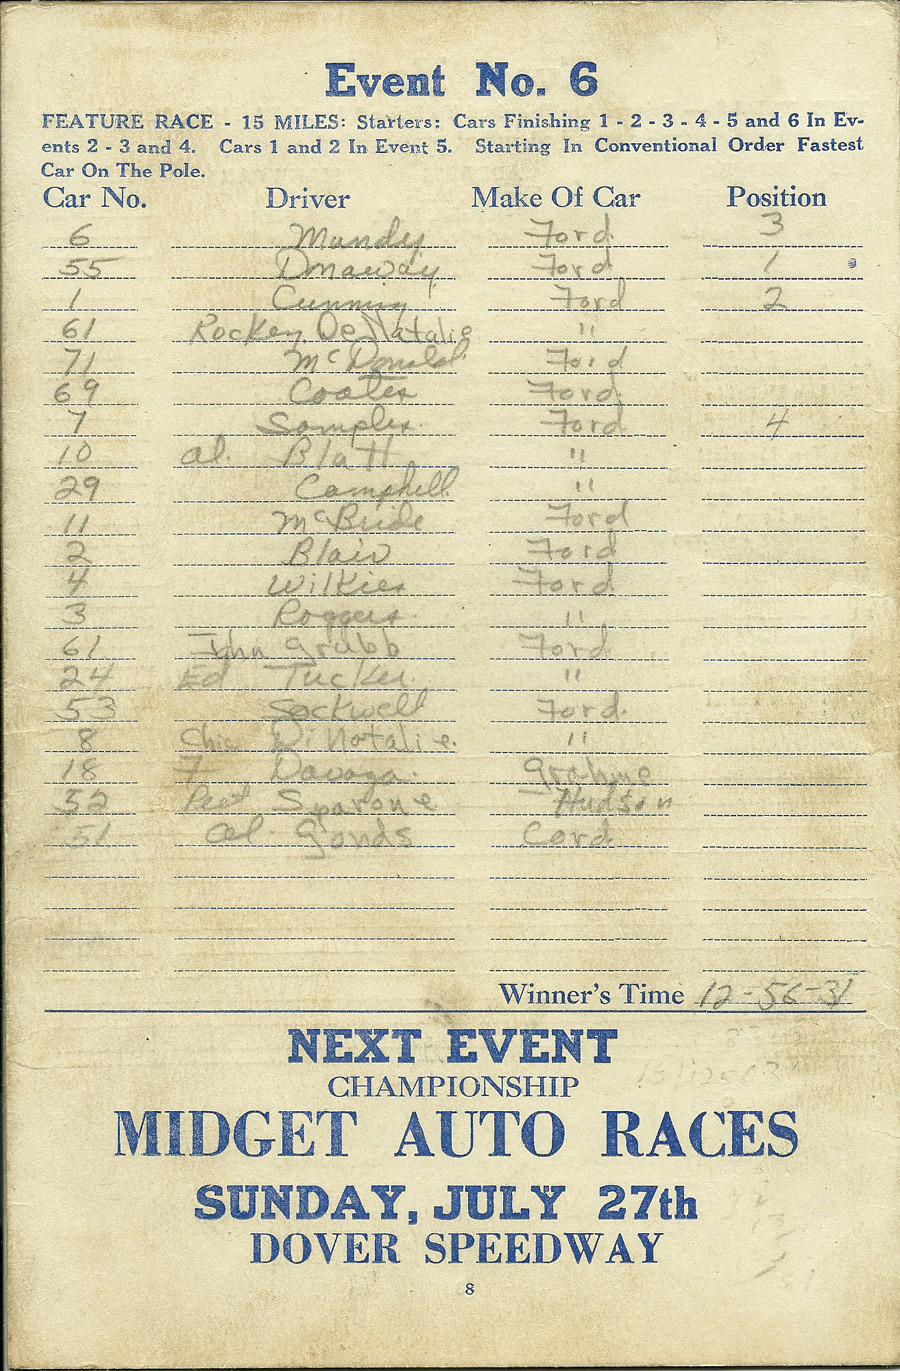 Event No. 6
FEATURE RACE - 15 MILES: Starters: Cars Finishing 1 - 2 - 3 - 4 - 5 and 6 In Ev-
ents 2 - 3 and 4. Cars 1 and 2 In Event 5. Starting In Conventional Order Fastest
Car On The Pole.
Car No. Driver Make Of Car Position
6 Mundy Ford 3
55 Dnaway Ford 1
1 Ford 2
61 Rockey De Natalie "
71 McDonald Ford
69 Coates Ford
7 Samples Ford 4
10 al. Blatt "
29 Campbell "
11 McBride Ford
2 Blair Ford
4 Wilkies Ford
3 Roggers "
61 John Grubb Ford
24 Ed Tucker "
53 Sockwell Ford
8 Chic Di Natalie. "
18 F Grahme
52 Sparone Hudson
51 al. Gonds Cord
Winner's Time 12-56-31
NEXT EVENT
CHAMPIONSHIP
MIDGET AUTO RACES
SUNDAY, JULY 27th
DOVER SPEEDWAY
8